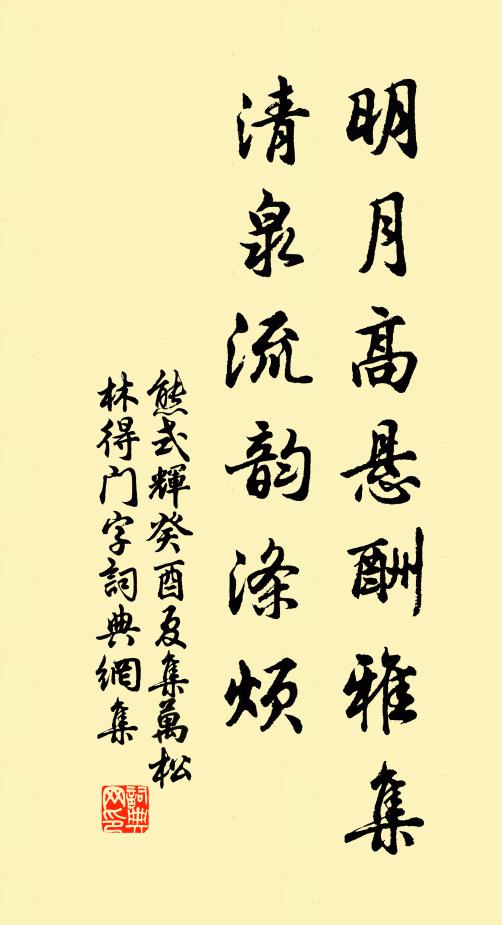 明月高悬酬雅集
清泉流韵涤烦
熊式輝癸酉夏集萬松
林得门字詞典網集
詞典网印